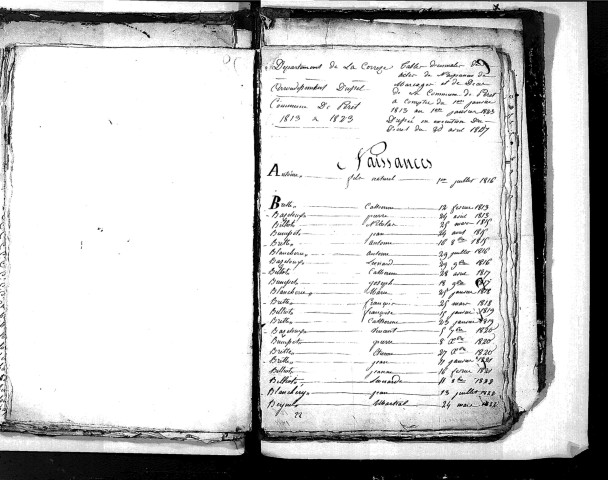 Département de La Corrèze
Arrondissement D'ussel
Commune De Péret
1813 a 1823
Tables Décennales des
actes de Naissances de
Mariages et de Décès
de la Commune de Péret
a compter du 1er janvier
1813 au 1er janvier 1823
Dressé en exécution du
Décret du 20 août 1807
Naissances
Antoine fils naturel 1er juillet 1816
Brette Catherine 12 février 1813
pierre 24 août 1813
Billots Nicolas 25 mars 1815
Bumpets jean 24 avril 1815
Brette antoine 16 8bre 1815
Blancheri antoine 29 juillet 1816
Léonard 29 9bre 1816
Billots Catherine 28 août 1817
Bumpets joseph 18 9bre 1817
Blancheri Marie 25 janvier 1818
Brette françois 25 mars 1818
Billots françoise 15 janvier 1819
Brette Catherine 23 janvier 1819
5 9bre 1820
Bumpets pierre 8 Xbre 1820
Brette 27 Xbre 1820
Brette jean 11 janvier 1821
Billots jeanne 16 février 1821
Billots Léonarde 11 8bre 1822
Blancheri jean 13 juillet 1822
Martial 24 mars 1822
22